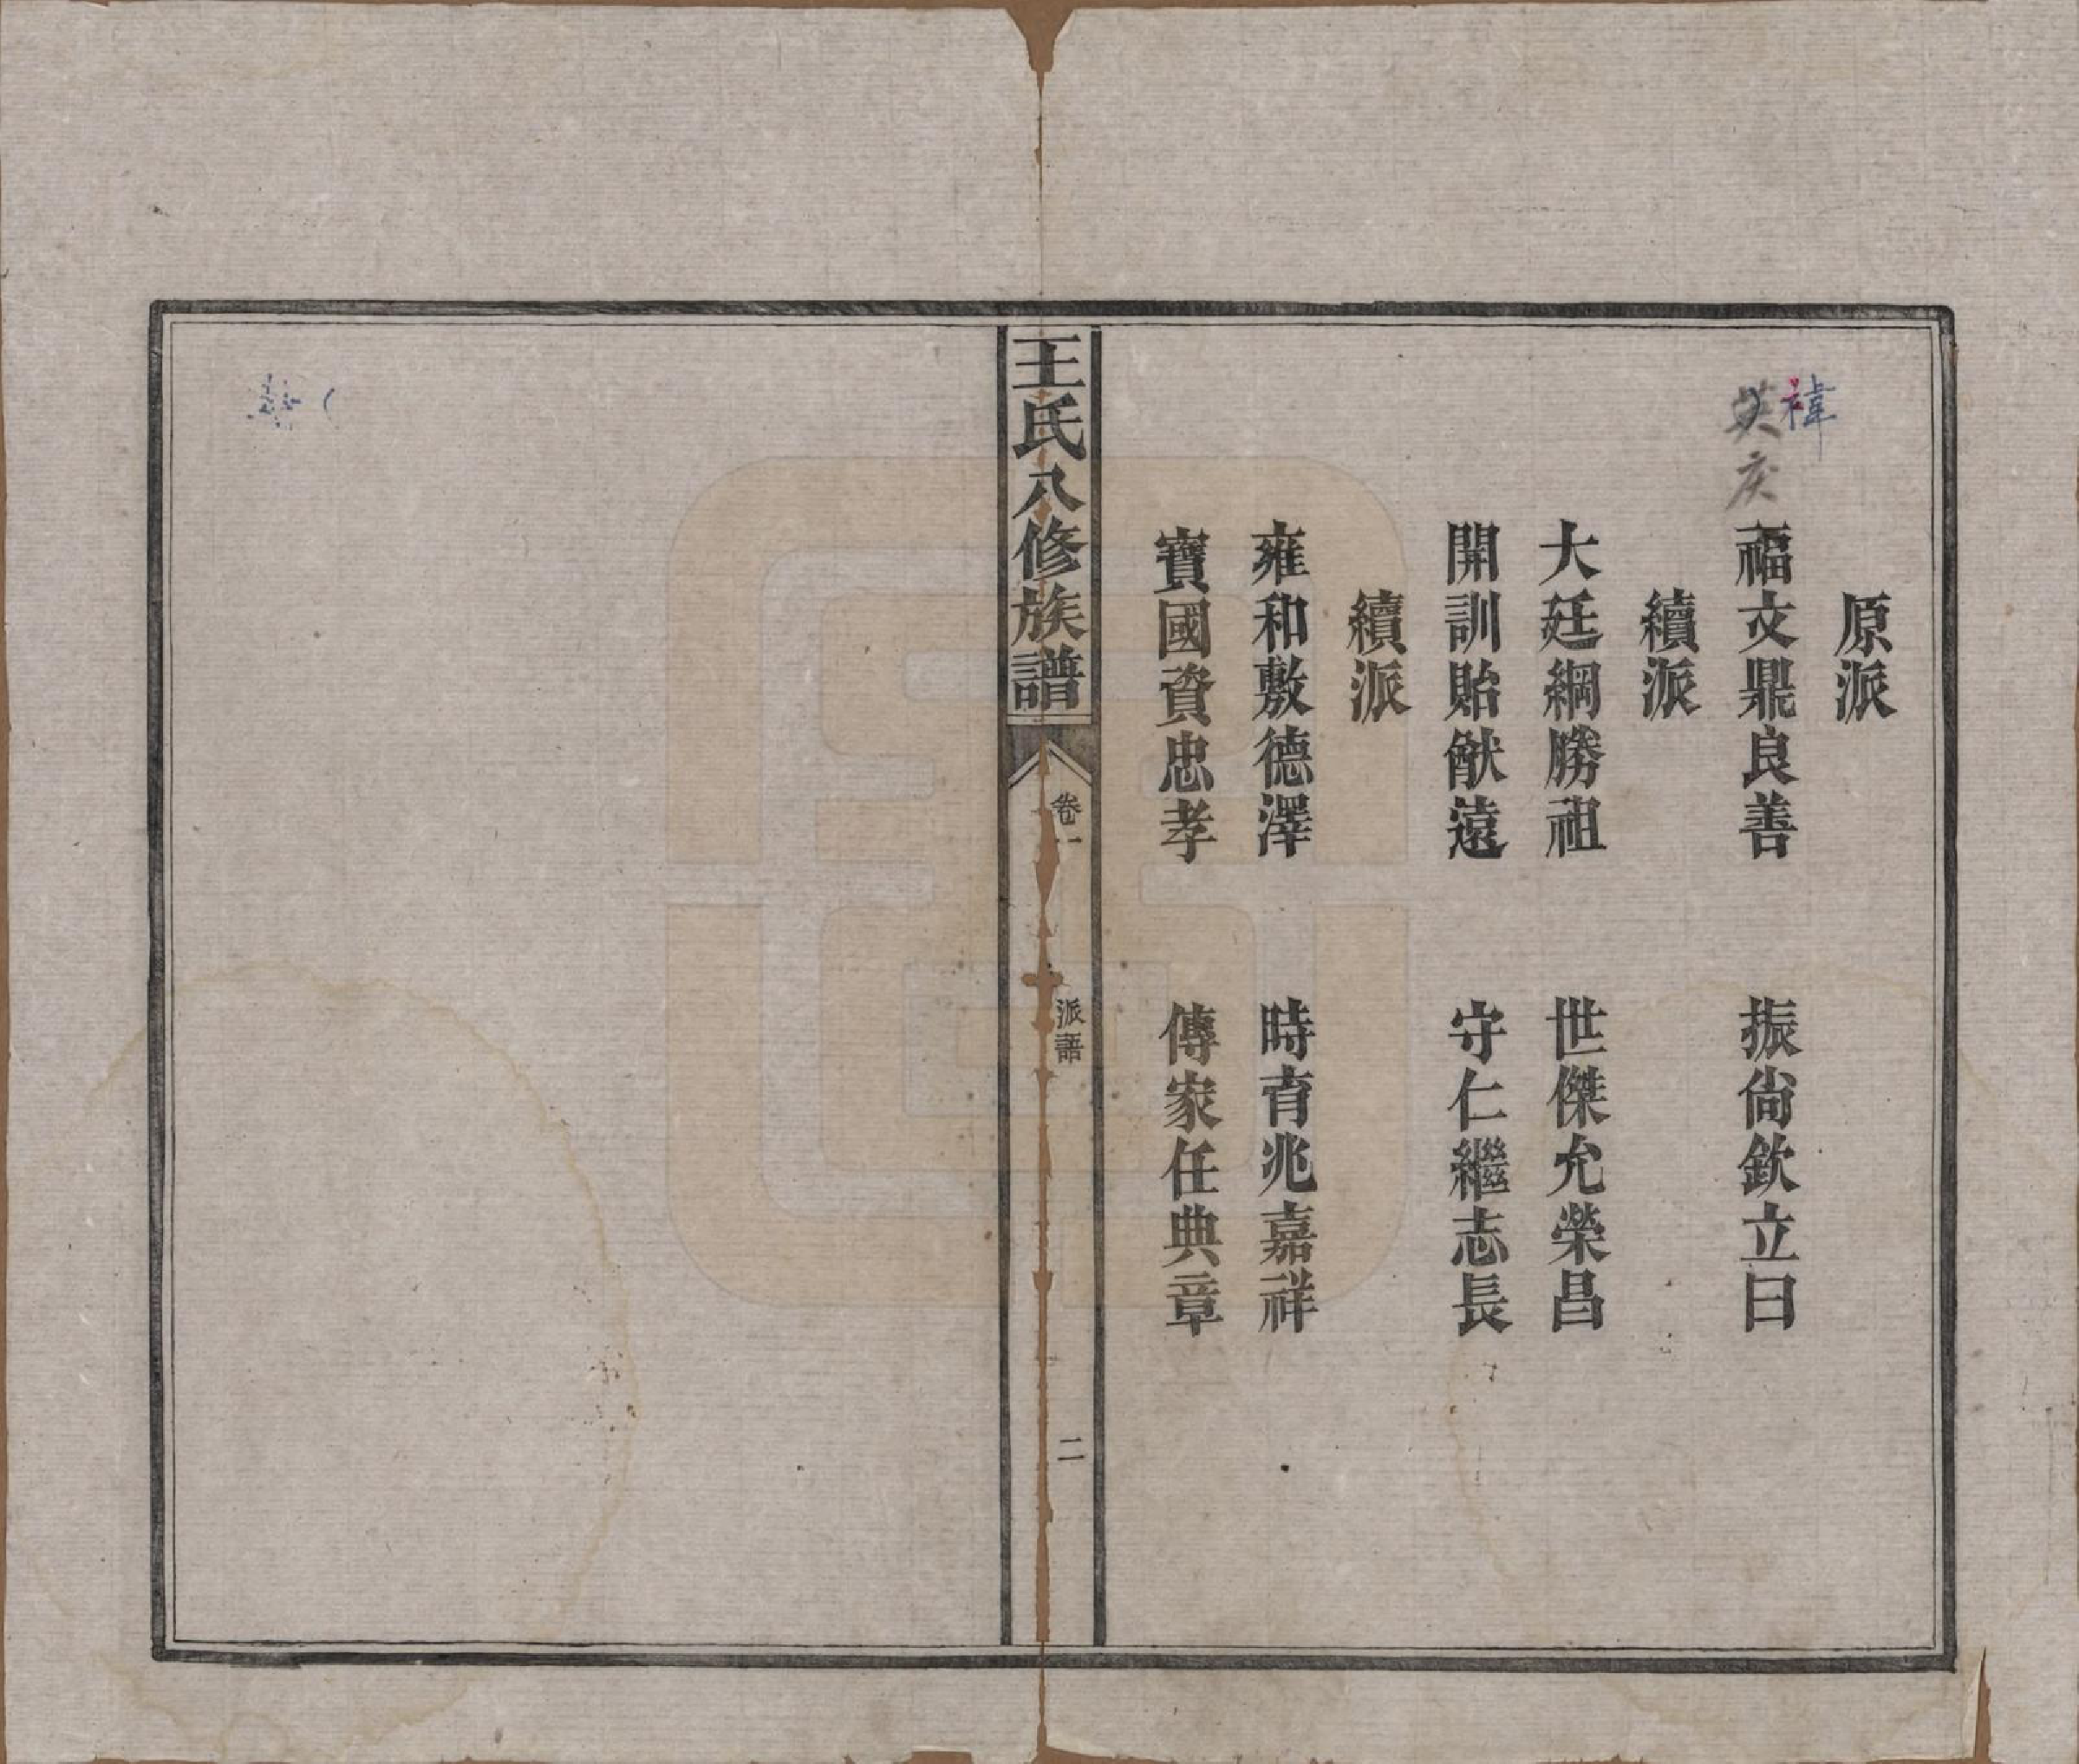 原派
福文鼎良善　振尙欽立曰
續派
大廷綱勝祖　世傑允榮昌
開訓貽猷遠　守仁繼志長
續派
雍和敷德澤　時育兆嘉祥
寶國資忠孝　傳家任典章
王氏八修族譜
卷一
派語
二
禕
英庆